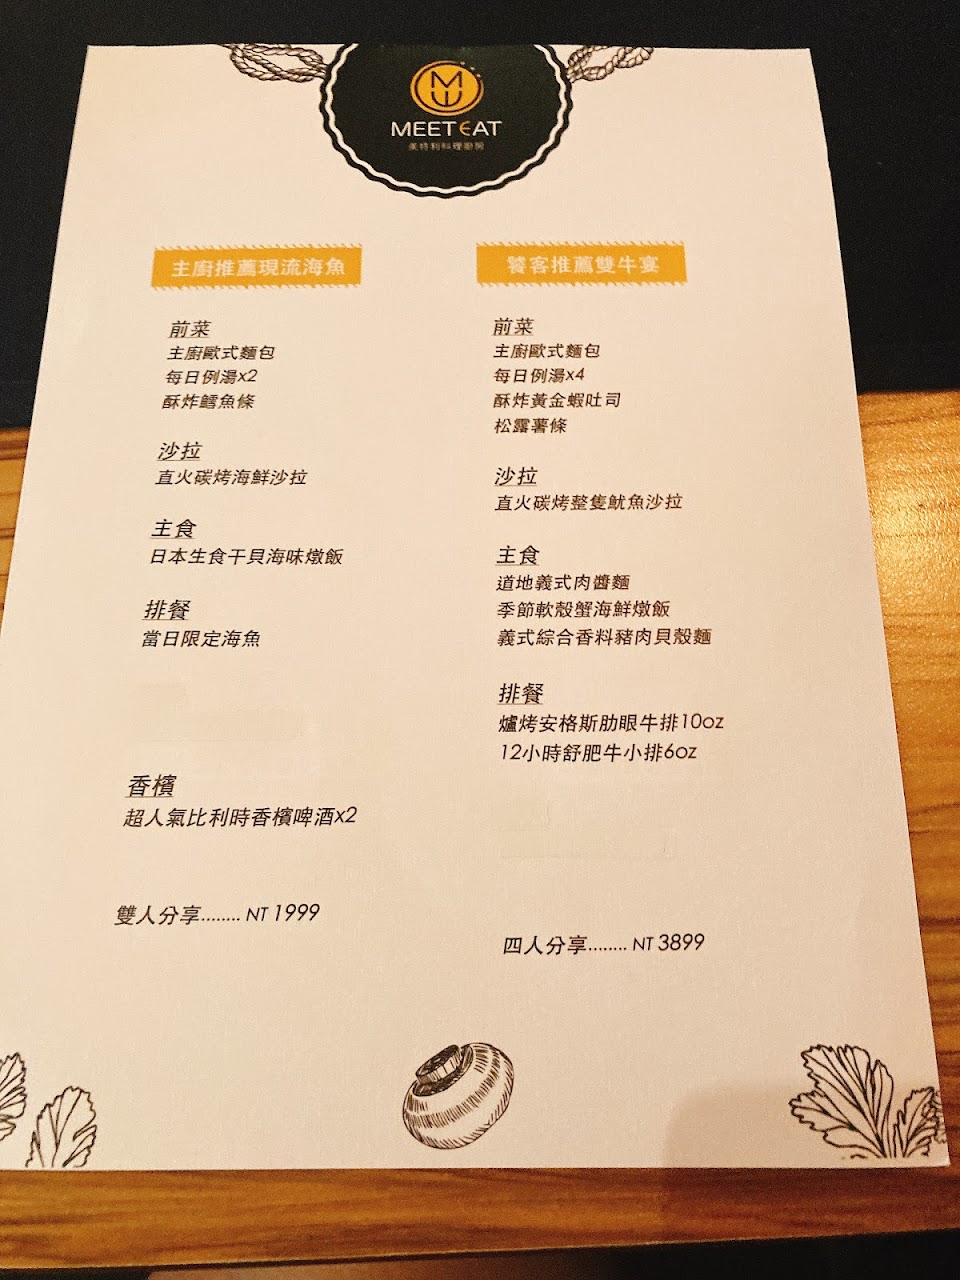 MEETEAT
美特利料理廚房
主廚推薦現流海魚
前菜
主廚歐式麵包
每日例湯x2
酥炸鱈魚條
沙拉
直火碳烤海鮮沙拉
主食
日本生食干貝海味燉飯
排餐
當日限定海魚
香檳
超人氣比利時香檳啤酒x2
雙人分享........ NT 1999
饕客推薦雙牛宴
前菜
主廚歐式麵包
每日例湯x4
酥炸黃金蝦吐司
松露薯條
沙拉
直火碳烤整隻魷魚沙拉
主食
道地義式肉醬麵
季節軟殼蟹海鮮燉飯
義式綜合香料豬肉貝殼麵
排餐
爐烤安格斯肋眼牛排10oz
12小時舒肥牛小排6oz
四人分享........ NT 3899